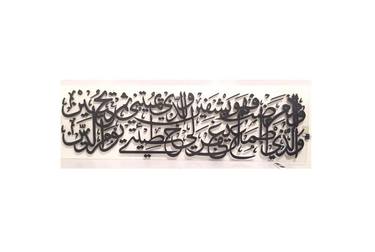 وإذا مرضت فهو يشفين والذي يميتني ثم يحيين
والذي أطمع أن يغفر لي خطيئتي يوم الدين